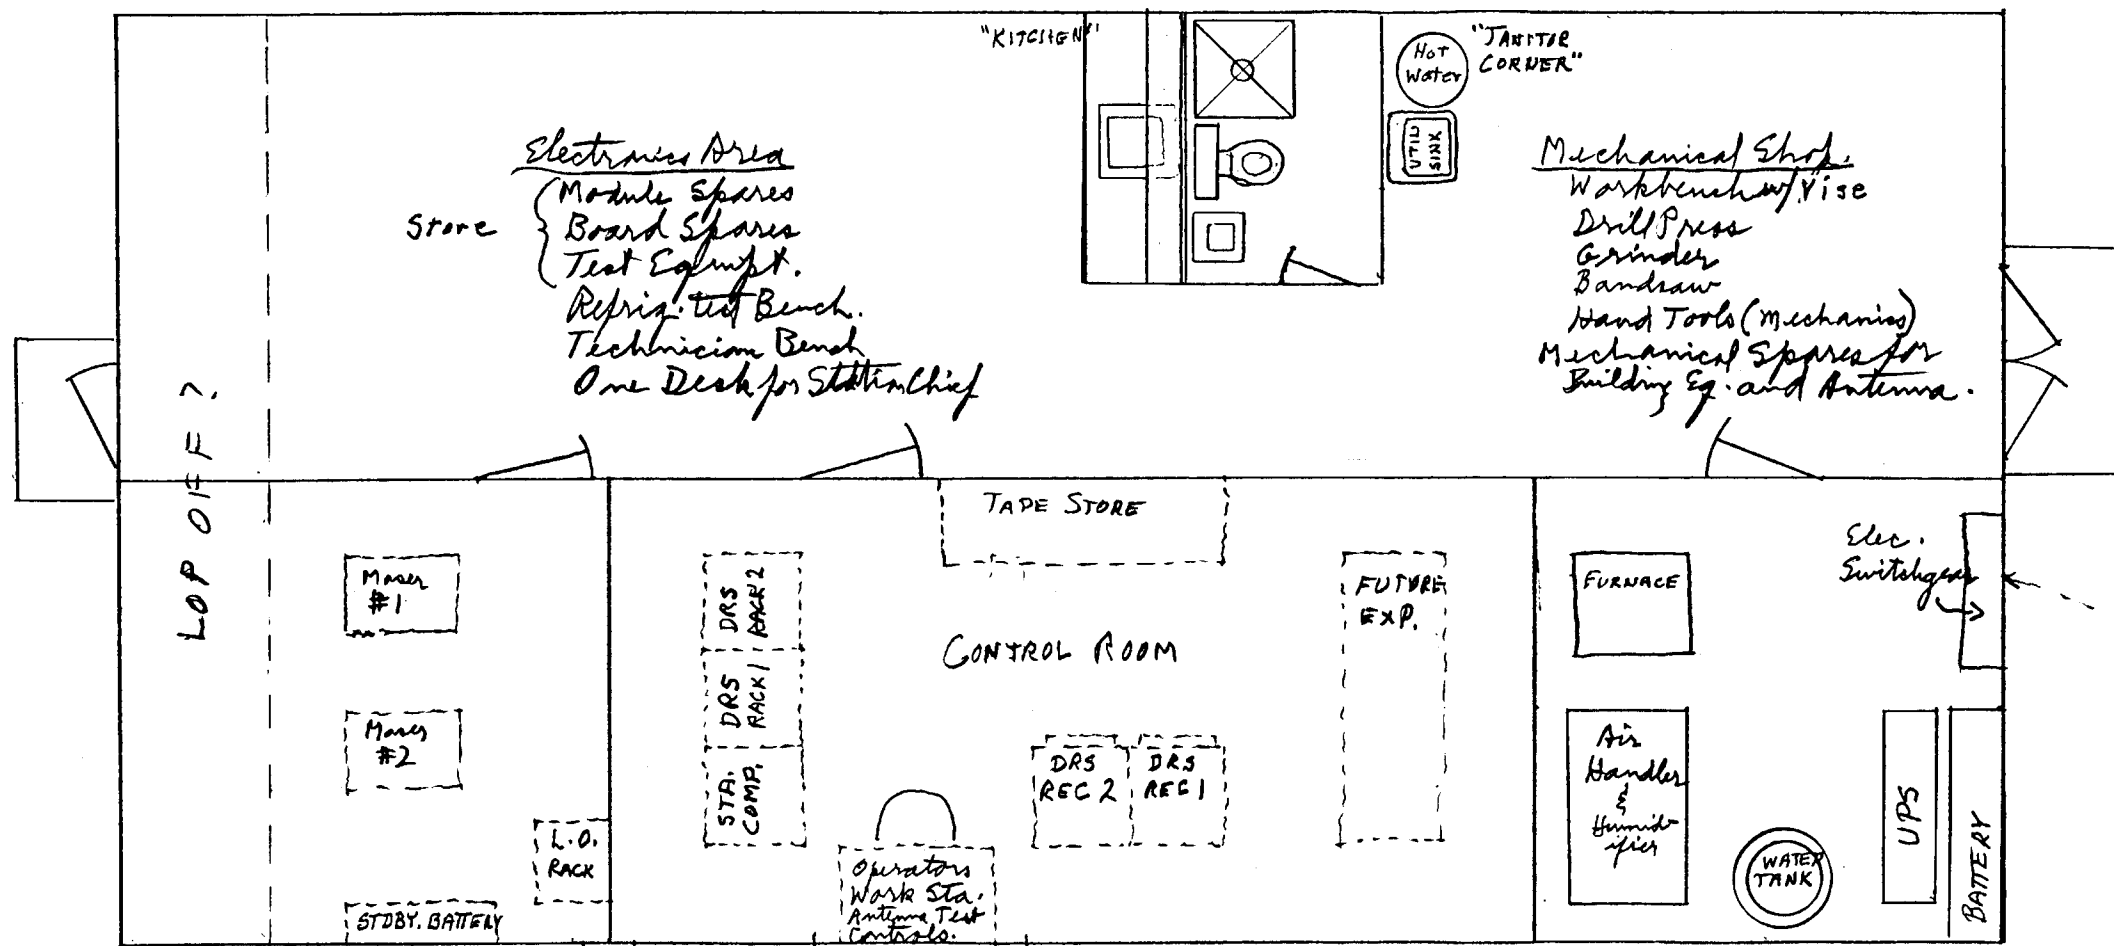 "KITCHEN"
Hot
Water
"JANITOR
CORNER"
UTIL
SINK
Electronics Area
Store
Module Spares
Board Spares
Test Equipt.
Refrig. test Bench.
Technician Bench
One Desk for Station Chief
Mechanical Shop.
Workbench w/ Vise
Drill Press
Grinder
Bandsaw
Hand Tools (Mechanics)
Mechanical Spares for
Building Eq. and Antenna.
LOP OFF?
Maser
#1
Maser
#2
L.O.
RACK
STDBY. BATTERY
TAPE STORE
DRS
RACK 2
DRS
RACK 1
STA.
COMP.
CONTROL ROOM
FUTURE
EXP.
DRS
REC 2
DRS
REC 1
Operators
Work Sta.
Antenna Test
Controls.
Elec.
Switchgear
FURNACE
Air
Handler
&
Humid-
ifier
WATER
TANK
UPS
BATTERY